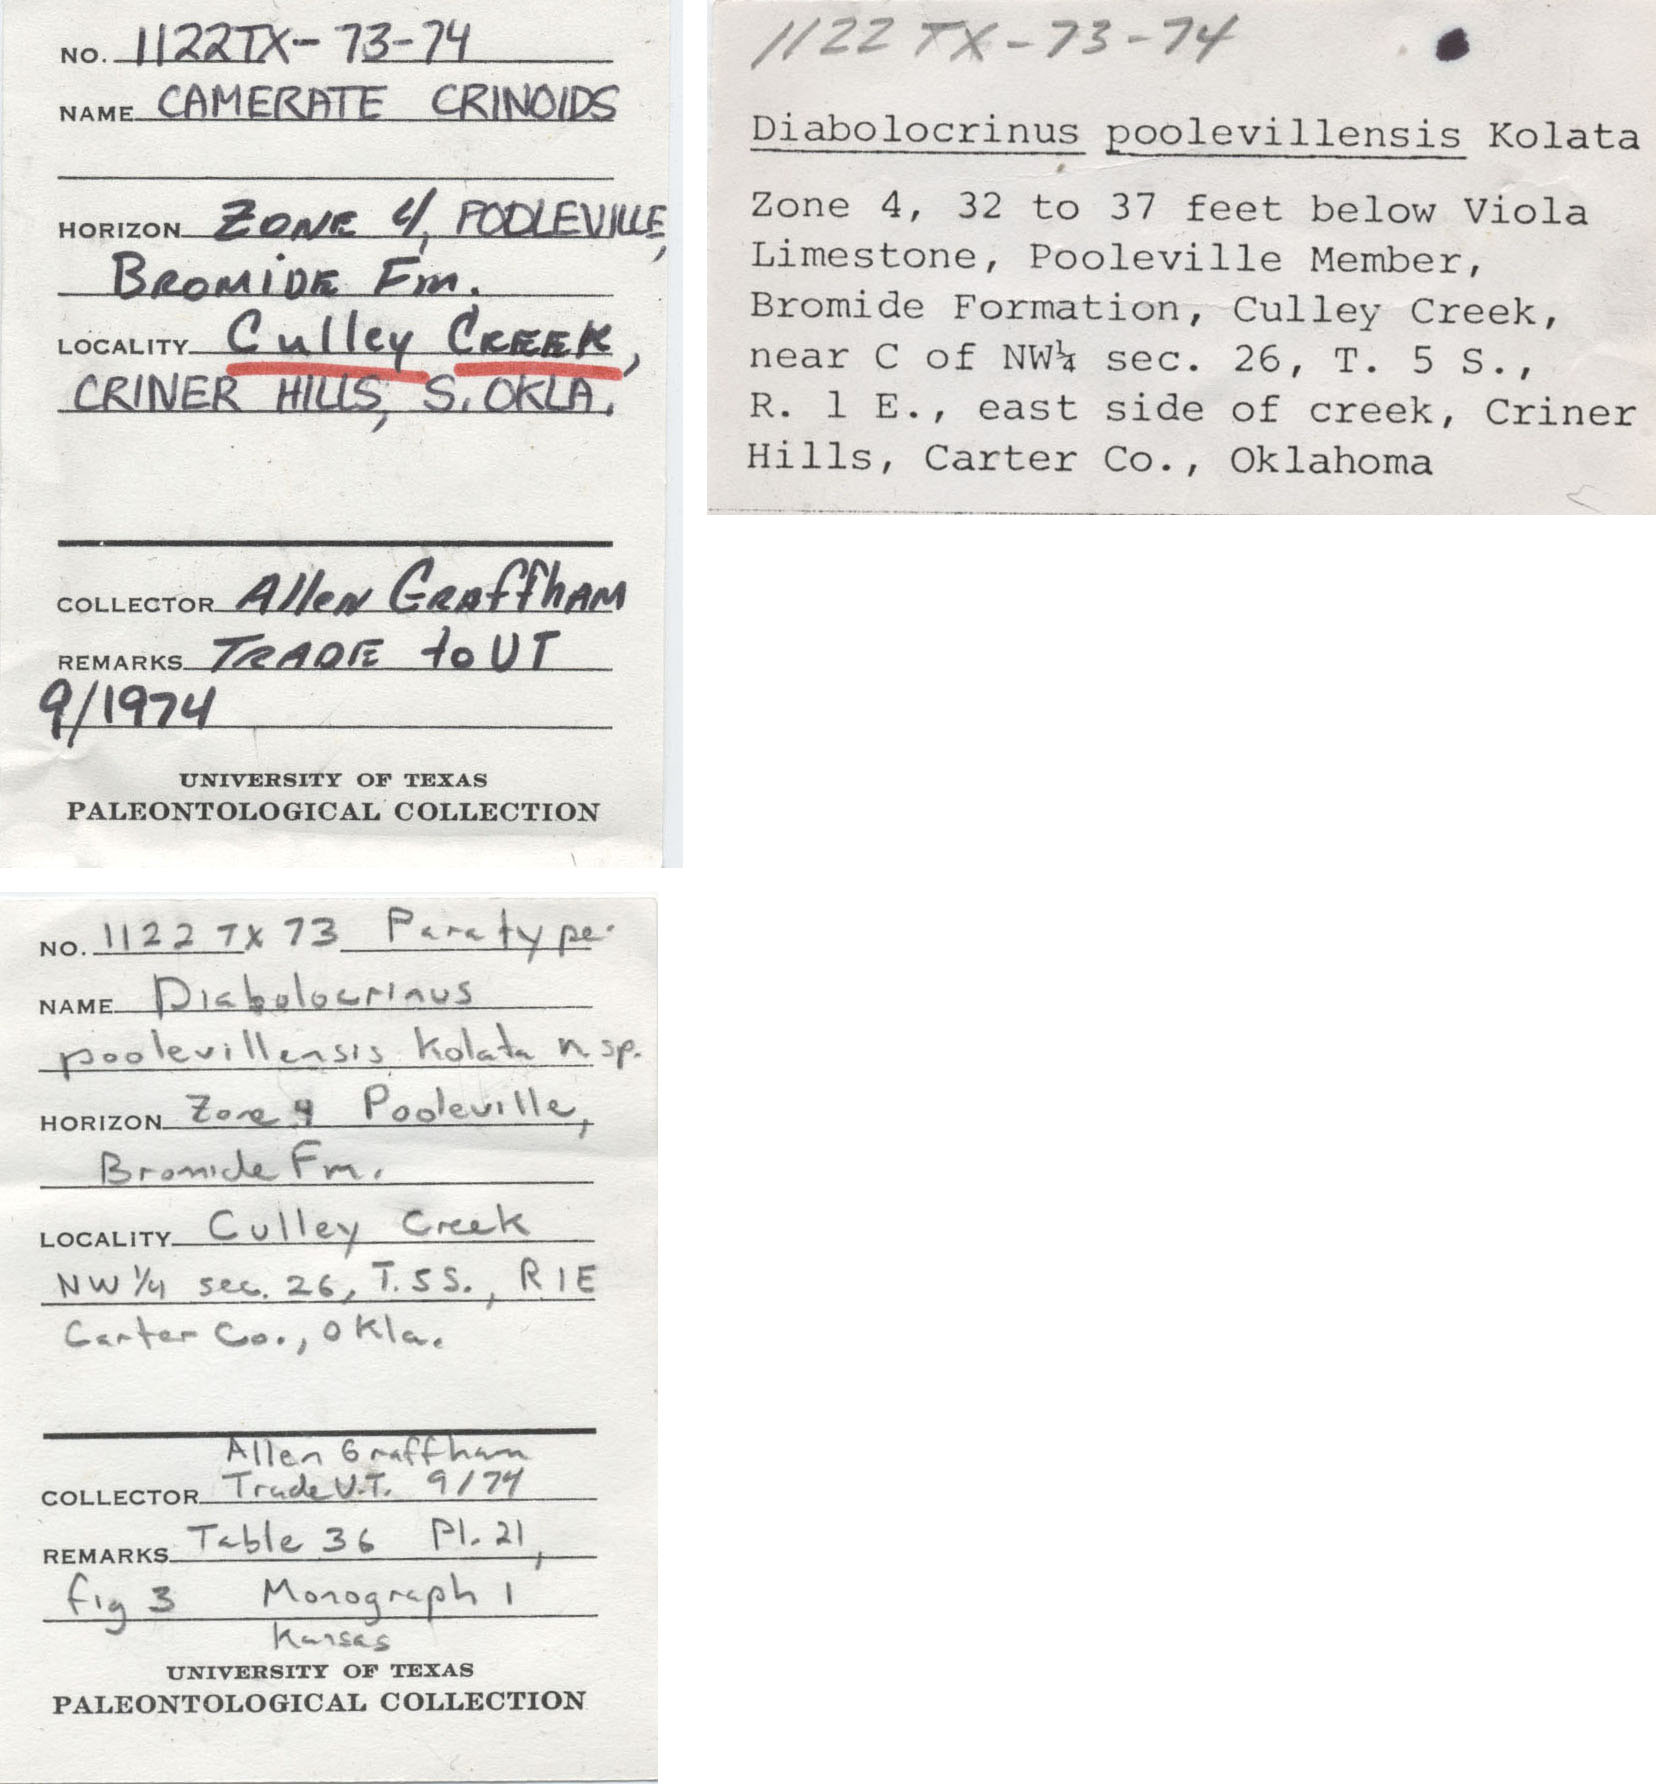 NO. 1122TX-73-74
NAME CAMERATE CRINOIDS
HORIZON ZONE 4, POOLEVILLE,
BROMIDE Fm.
LOCALITY Culley CREEK,
CRINER HILLS, S. OKLA.
COLLECTOR Allen GRAffhAM
REMARKS TRADE to UT
9/1974
UNIVERSITY OF TEXAS
PALEONTOLOGICAL COLLECTION
1122 TX-73-74
Diabolocrinus poolevillensis Kolata
Zone 4, 32 to 37 feet below Viola
Limestone, Pooleville Member,
Bromide Formation, Culley Creek,
near C of NW¼ sec. 26, T. 5 S.,
R. 1 E., east side of creek, Criner
Hills, Carter Co., Oklahoma
NO. 1122 TX 73 Paratype
NAME Diabolocrinus
poolevillensis Kolata n. sp.
HORIZON Zone 4 Pooleville,
Bromide Fm.
LOCALITY Culley Creek
NW 1/4 sec. 26, T. 5 S., R 1 E
Carter Co., Okla.
Allen Graffham
COLLECTOR Trade U.T. 9/74
REMARKS Table 36 Pl. 21,
fig 3 Monograph 1
Kansas
UNIVERSITY OF TEXAS
PALEONTOLOGICAL COLLECTION